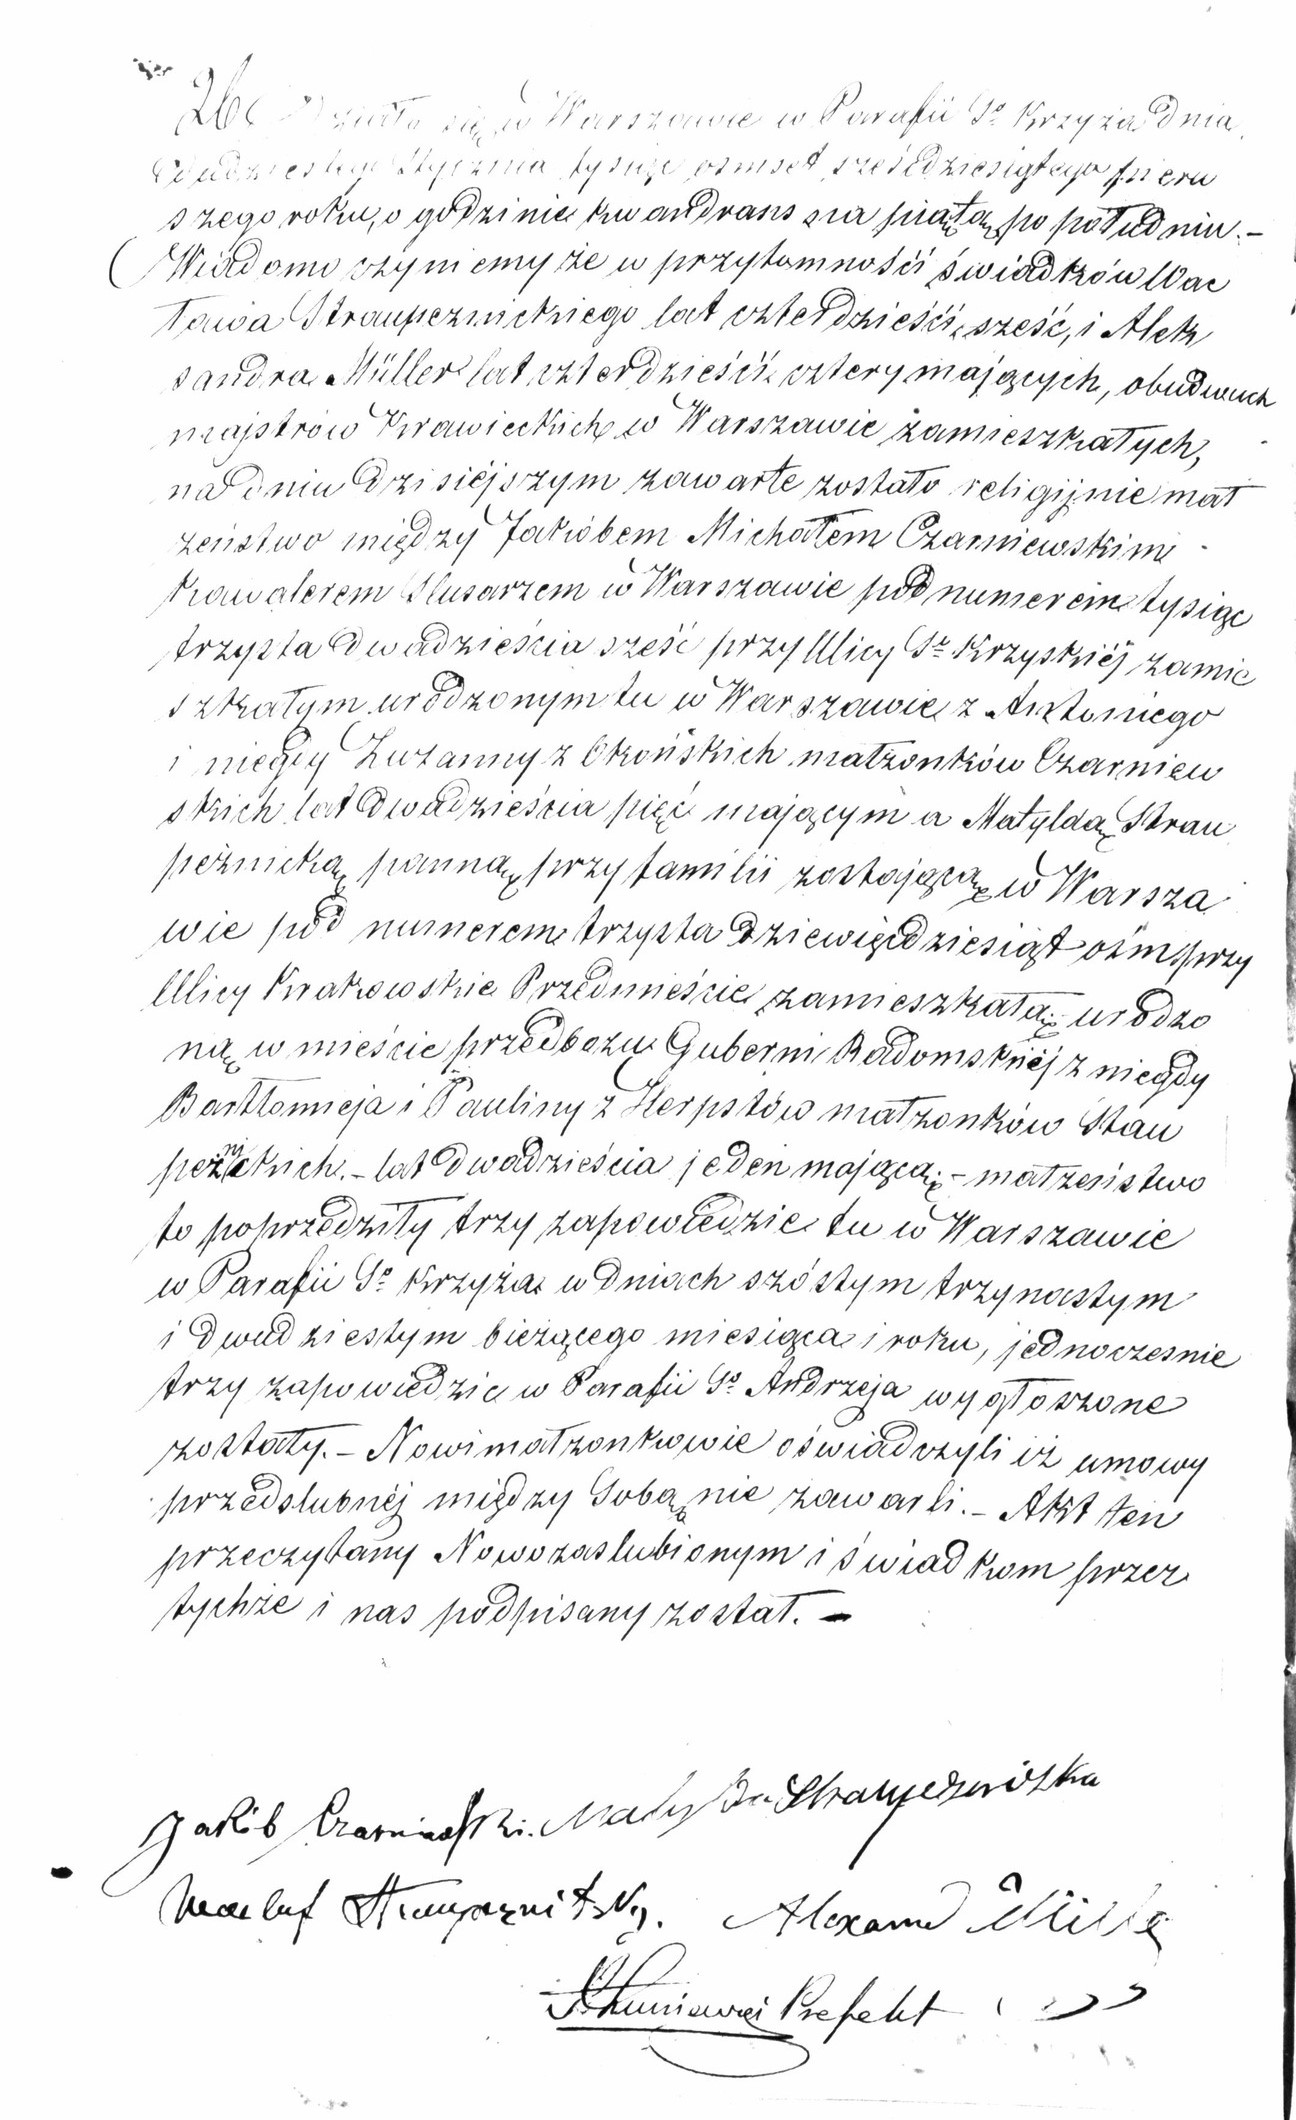 26 Działo się w Warszawie w Parafii Sº Krzyża Dnia
Dwudziestego Stycznia tysiąc ośmset sześćdziesiątego pierw
szego roku, o godzinie kwandrans na piątą po południu. –
Wiadomo czyniemy że w przytomności świadków Wac
ława Straupeznickiego lat czterdzieści sześć, i Alek
sandra Müller lat czterdzieści cztery mających, obudwuch
majstrów Krawieckich w Warszawie zamieszkałych,
na dniu dzisiéjszym zawarte zostało religijnie mał
żeństwo między Jakóbem Michałem Czarniewskim
Kawalerem Slusarzem w Warszawie pod numerem tysiąc
trzysta dwadzieścia sześć przy Ulicy Sº Krzyskiéj zamie
szkałym urodzonym tu w Warszawie z Antoniego
i niegdy Zuzanny z Okońskich małżonków Czarniew
skich lat dwadzieścia pięć mającym a Matyldą Strau
peźnicką panną przy familii zostającą w Warsza
wie pod numerem trzysta dziewięćdziesiąt ośm przy
Ulicy Krakowskie Przedmieście zamieszkałą; urodzo
ną w mieście przedbożu Guberni Radomskiéj z niegdy
Bartłomieja i Pauliny z Herpstów małżonków Stau
peźnickich. – lat dwadzieścia jeden mającą; – małżeństwo
to poprzedziły trzy zapowiedzie tu w Warszawie
w Parafii Sº Krzyża w dniach szóstym trzynastym
i dwudziestym bieżącego miesiąca i roku, jednocześnie
trzy zapowiedzie w Parafii Sº Andrzeja wygłoszone
zostały. – Nowi małżonkowie oświadczyli iż umowy
przedslubnéj między Sobą nie zawarli. – Akt ten
przeczytany Nowozaslubionym i świadkom przez
tychże i nas podpisany został. –
Jakób Czarniewski. Matylda Straupeznicka
Straupeznitzky. Alexand Müller
Prefekt